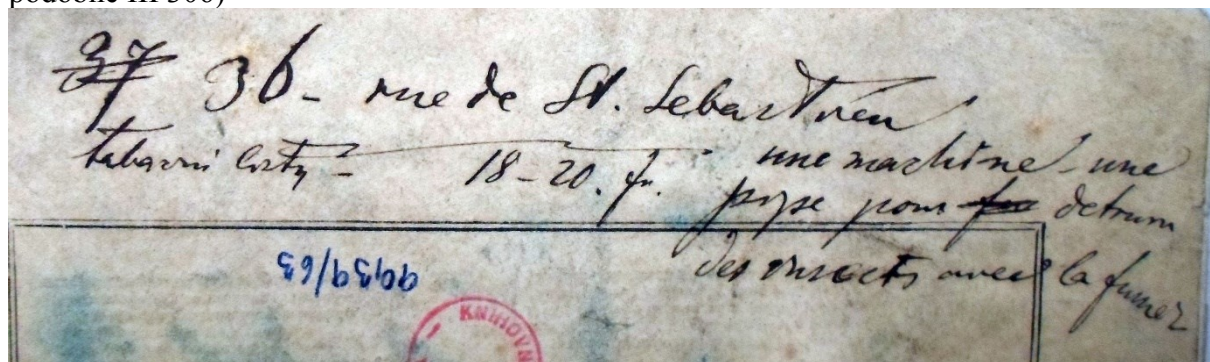 podobně III 306)
37 36 - rue de St. Sebastien
18-20. fr. une machine - une
pype pour detruir
des insects avec la fumez
9939/63
KNIHOVN